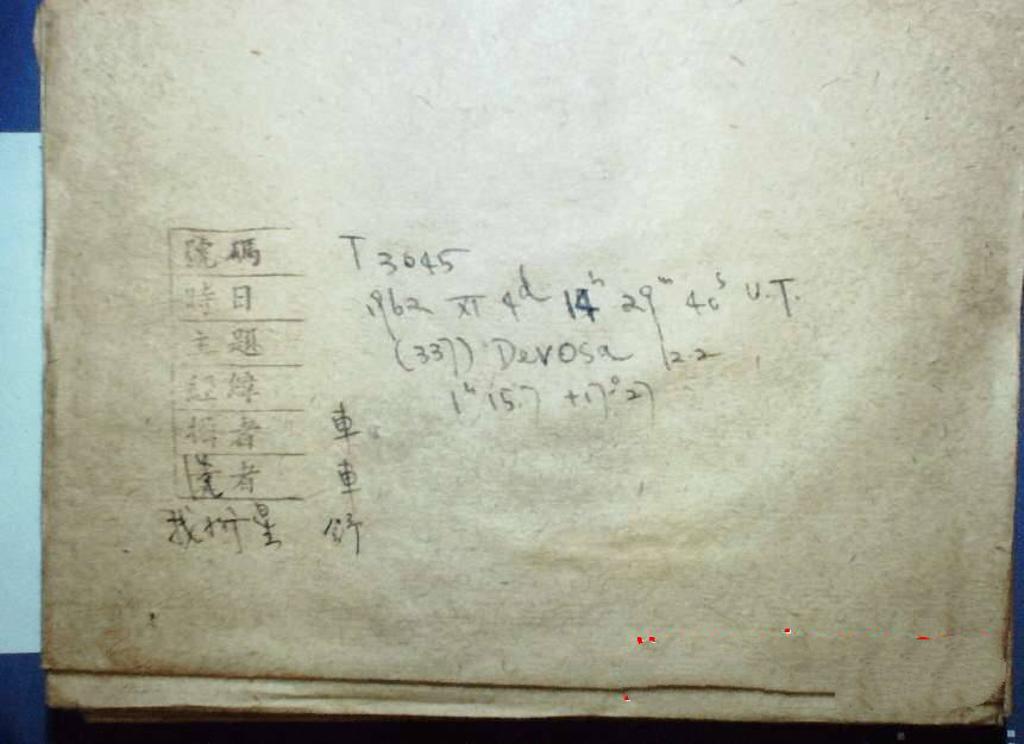 號碼 T 3645
時日 1962 XI 4d 14h 29m 40s U.T.
主題 (337) Devosa 12.2
經緯 1h 15.7 +17°27
攝者 車
覽者 車
找行星 舒